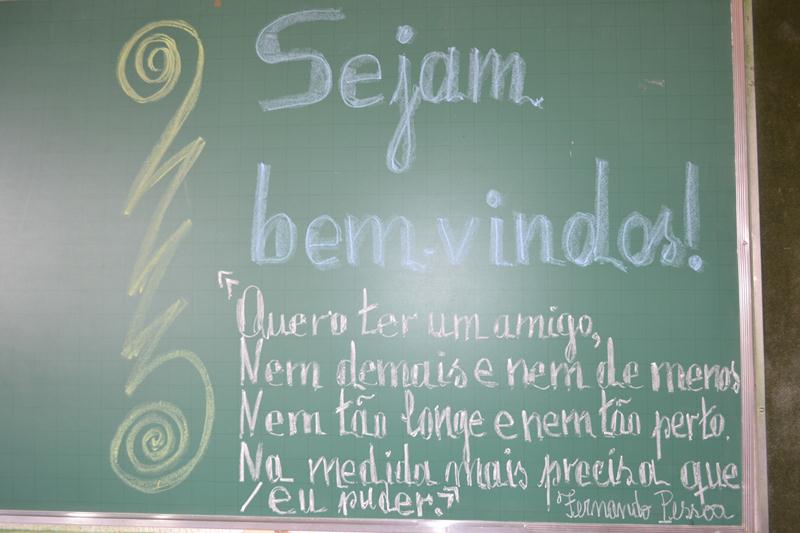 Sejam
bem-vindos!
"Quero ter um amigo,
Nem demais e nem de menos
Nem tão longe e nem tão perto.
Na medida mais precisa que
/eu puder."
Fernando Pessoa